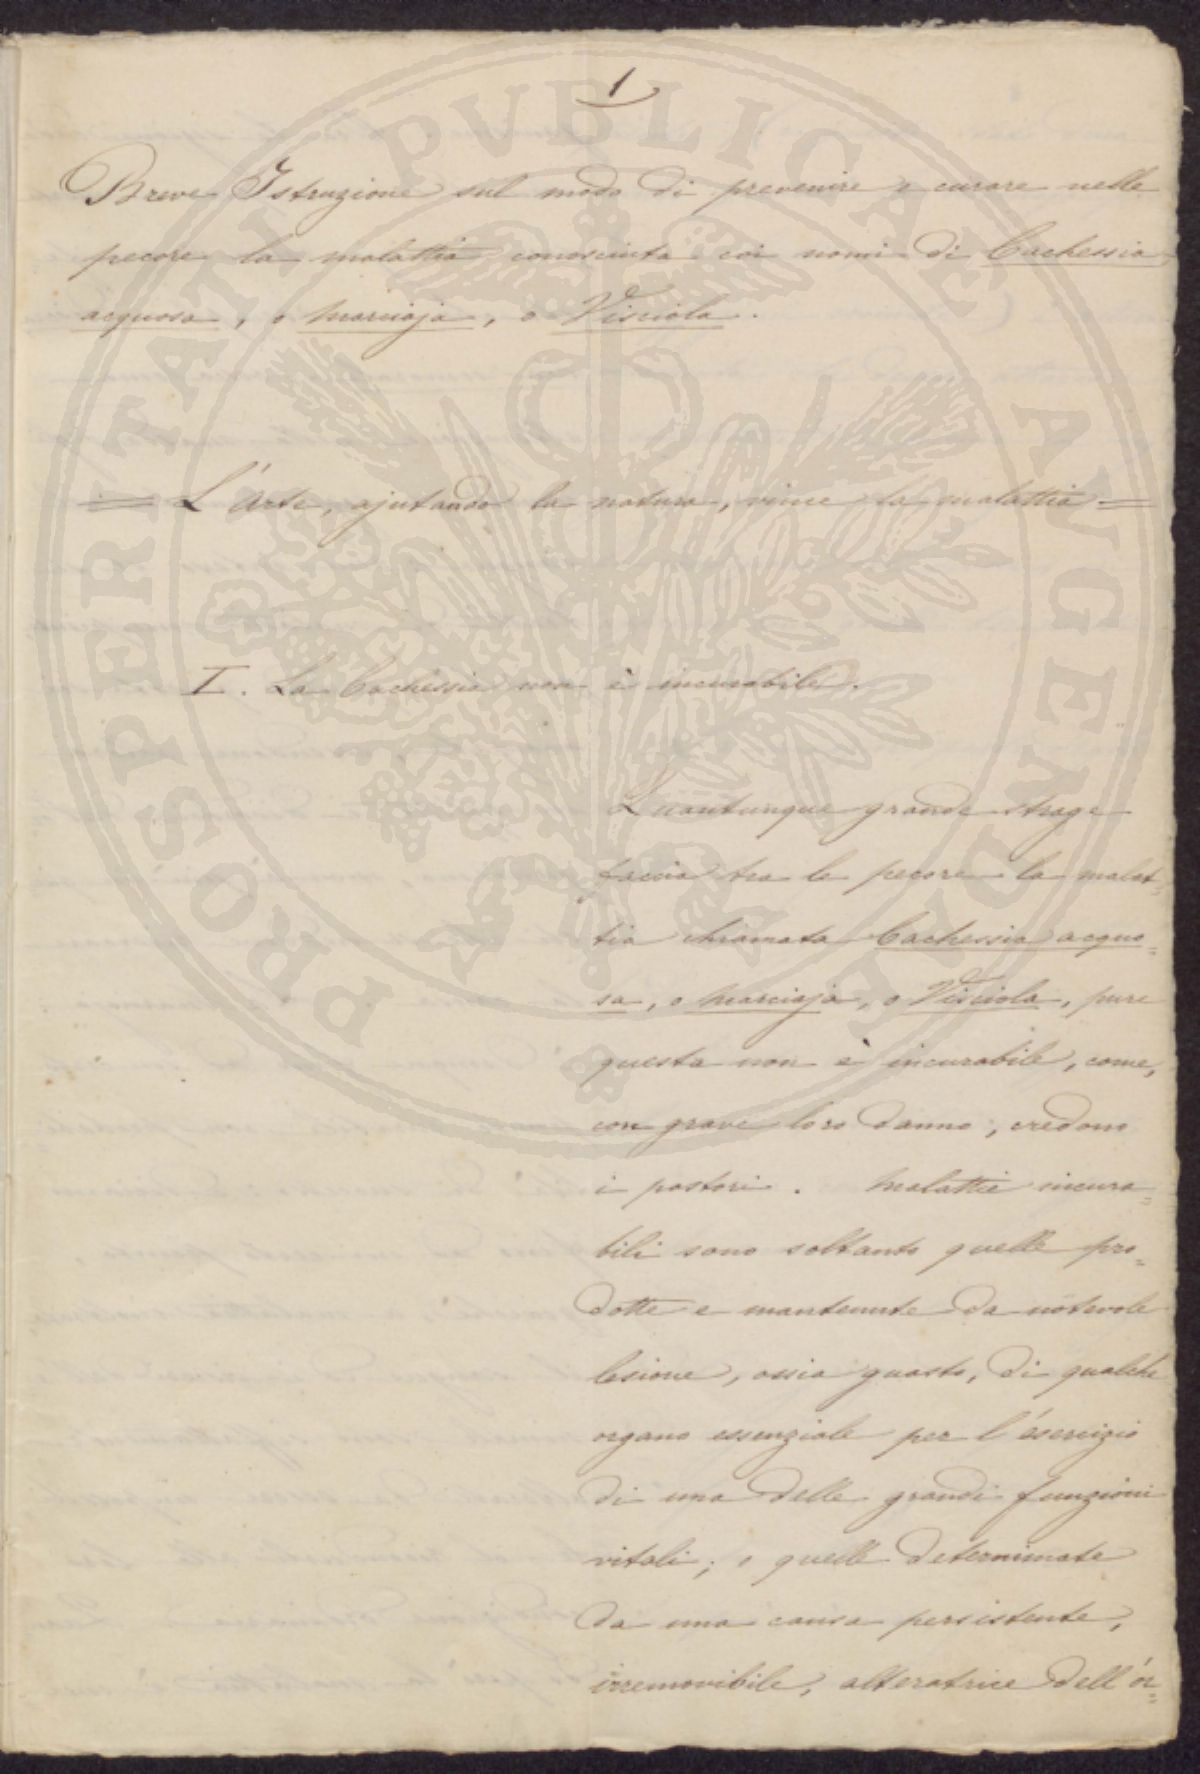 1
Breve Istruzione sul modo di prevenire e curare nelle
pecore la malattia conosciuta coi nomi di Cachessia
acquosa, o Marciaja, o Visciola.
= L'arte, ajutando la natura, vince la malattia =
I. La Cachessia non è incurabile.
Quantunque grande strage
faccia tra le pecore la malat=
tia chiamata Cachessia acquo=
sa, o Marciaja, o Visciola, pure
questa non è incurabile, come,
con grave loro danno, credono
i pastori. Malattie incura=
bili sono soltanto quelle pro=
dotte e mantenute da notevole
lesione, ossia guasto, di qualche
organo essenziale per l'esercizio
di una delle grandi funzioni
vitali; o quelle determinate
da una causa persistente,
irremovibile, alteratrice dell'or=
PROSPERITATI PVBLICAE AVGENDAE